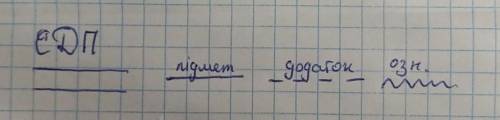 ЄДП
підмет додаток озн.